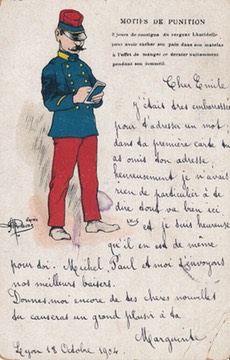 MOTIFS DE PUNITION
8 jours de consigne du sergent Lharidelle
pour avoir cacher son pain dans son matelas
à l'effet de manger ce dernier nuitamment
pendant son sommeil.
Cher Emile
j'étais très embarrassée
pour t'adresser un mot;
dans ta première carte tu
as omis ton adresse,
heureusement je n'avais
rien de particulier à te
dire tout va bien ici
et je suis heureuse
qu'il en est de même
pour toi. Michel, Paul et moi t'envoyons
nos meilleurs baisers.
Donnes-moi encore de tes chères nouvelles
tu causeras un grand plaisir à ta
Marguerite
Lyon 18 Octobre 1904